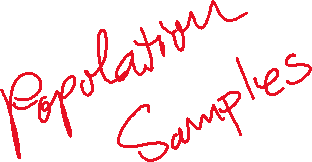 Population
Samples